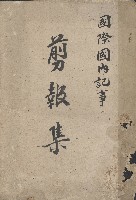 國際國內記事
剪報集